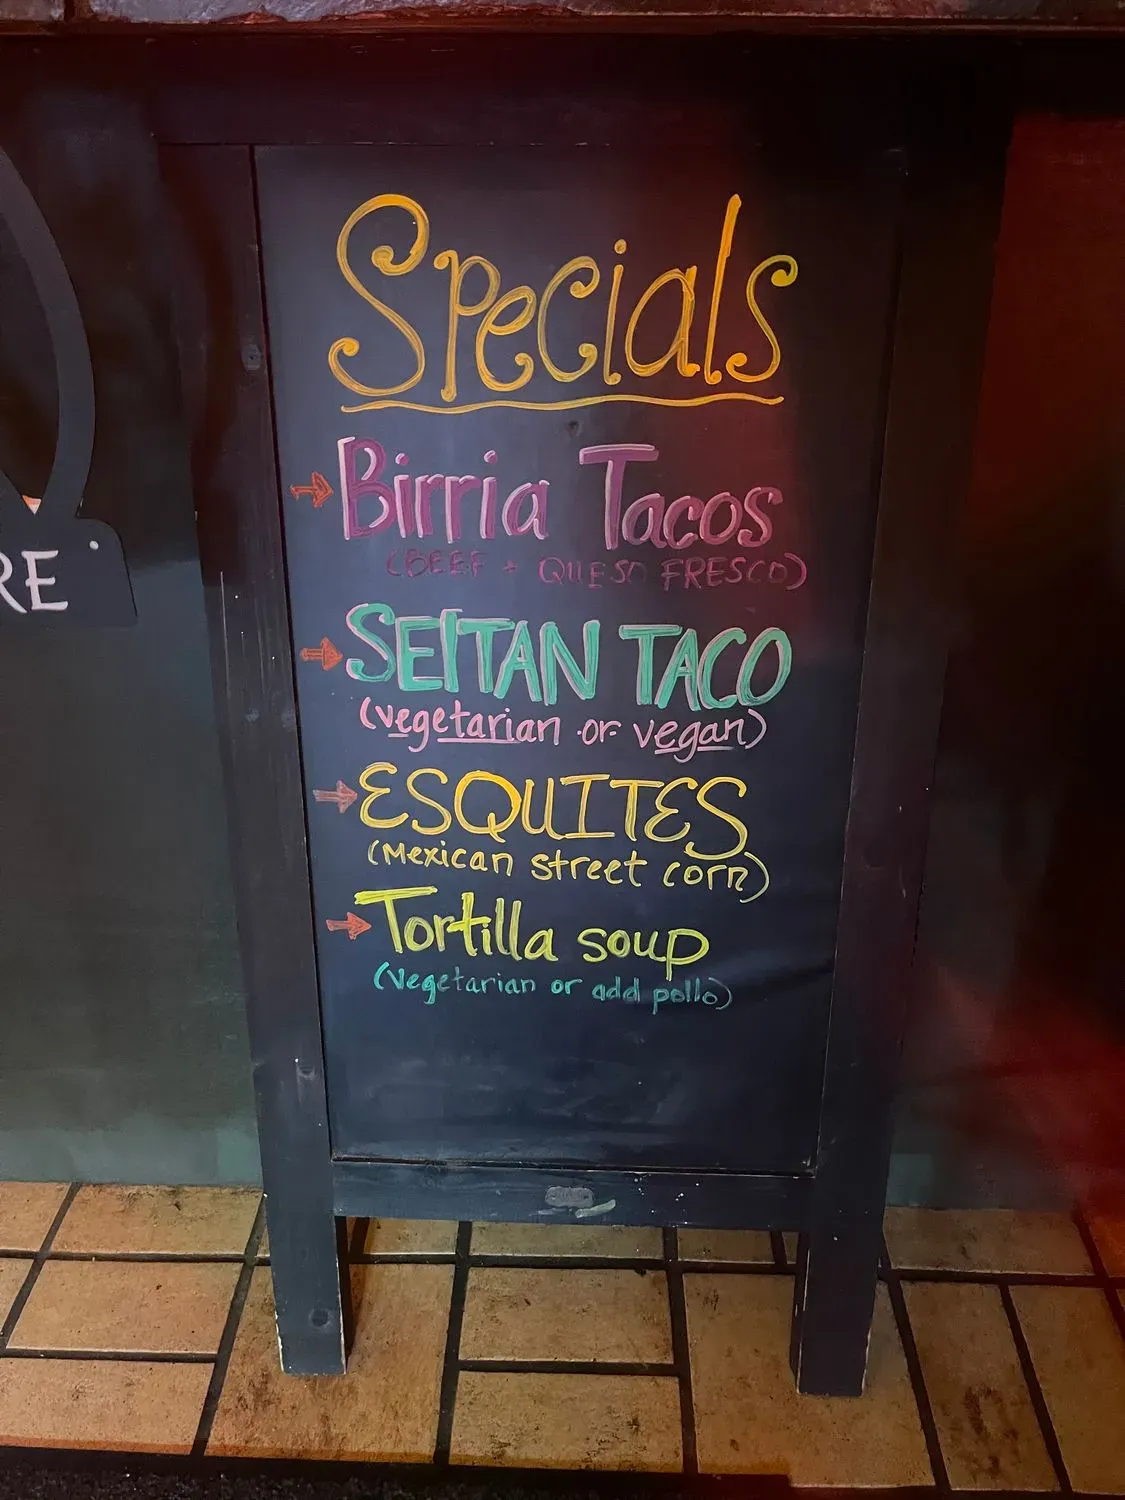 Specials
Birria Tacos
(BEEF + QUESO FRESCO)
SEITAN TACO
(vegetarian or vegan)
ESQUITES
(Mexican street corn)
Tortilla soup
(Vegetarian or add pollo)
RE